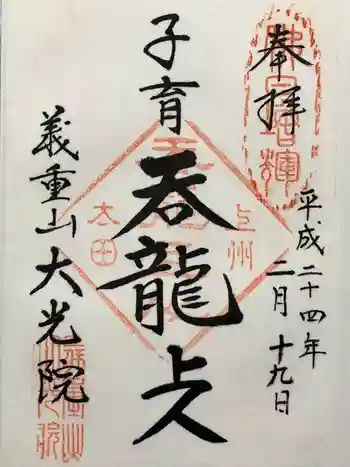 奉拝
平成二十四年
二月十九日
子育
呑龍上人
上州
太田
義重山大光院